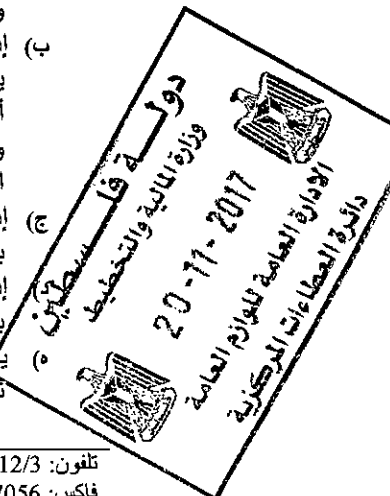 ب)
ج)
ه)
دولـــة فلـــسطين
وزارة المالية والتخطيط
20-11-2017
الادارة العامة للوازم العامة
دائرة العطاءات المركزية
تلفون: 12/3
فاكس: 7056